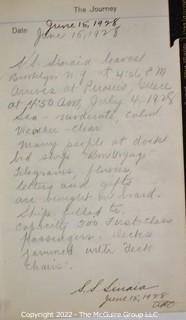 The Journey
June 15, 1928
Date June 15, 1928
S.S. Sinaia leaves
Brooklyn N.Y. at 4:20 P.M
Arrives at Piraeus, Greece
at 4:30 AM, July 4, 1928
Sea - moderate, calm
Weather - clear
Many people at dock
bid ship "Bon Voyage"
Telegrams, flowers,
letters and gifts
are brought on board.
Ship filled to
capacity 200 First Class
Passengers. Decks
jammed with "deck
chairs".
S.S. Sinaia
June 15, 1928
Copyright © 2022 - The McGuire Group LLC